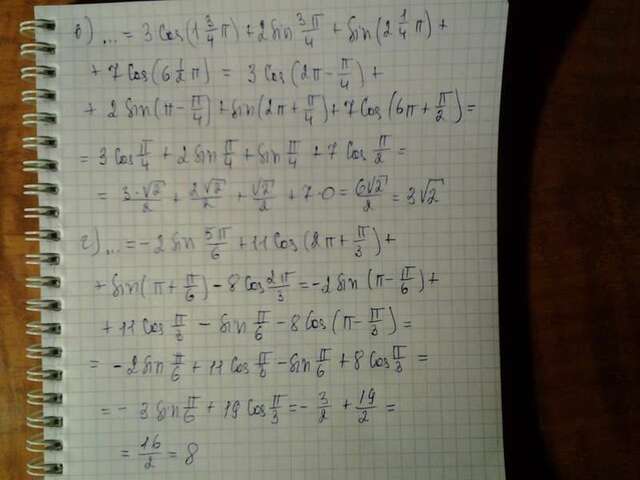 в) ... = 3 cos(1 3/4 π) + 2 sin 3π/4 + sin(2 1/4 π) +
+ 7 cos(6 1/2 π) = 3 cos(2π - π/4) +
+ 2 sin(π - π/4) + sin(2π + π/4) + 7 cos(6π + π/2) =
= 3 cos π/4 + 2 sin π/4 + sin π/4 + 7 cos π/2 =
= 3·√2/2 + 2√2/2 + √2/2 + 7·0 = 6√2/2 = 3√2
г) ... = -2 sin 5π/6 + 11 cos(2π + π/3) +
+ sin(π + π/6) - 8 cos 2π/3 = -2 sin(π - π/6) +
+ 11 cos π/3 - sin π/6 - 8 cos(π - π/3) =
= -2 sin π/6 + 11 cos π/3 - sin π/6 + 8 cos π/3 =
= - 3 sin π/6 + 19 cos π/3 = - 3/2 + 19/2 =
= 16/2 = 8